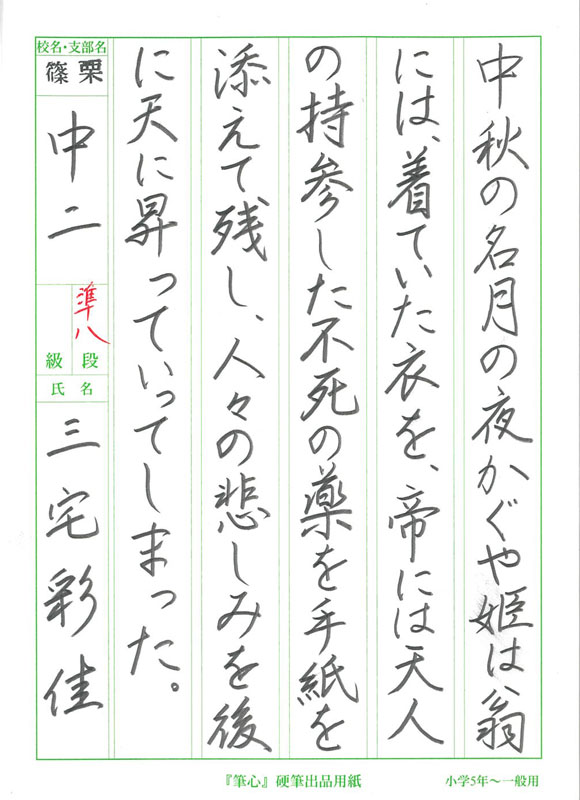 中秋の名月の夜かぐや姫は翁
には、着ていた衣を、帝には天人
の持参した不死の薬を手紙を
添えて残し、人々の悲しみを後
に天に昇っていってしまった。
校名・支部名
篠栗
中二
準八
段
級
氏名
三宅彩佳
『筆心』硬筆出品用紙
小学5年〜一般用